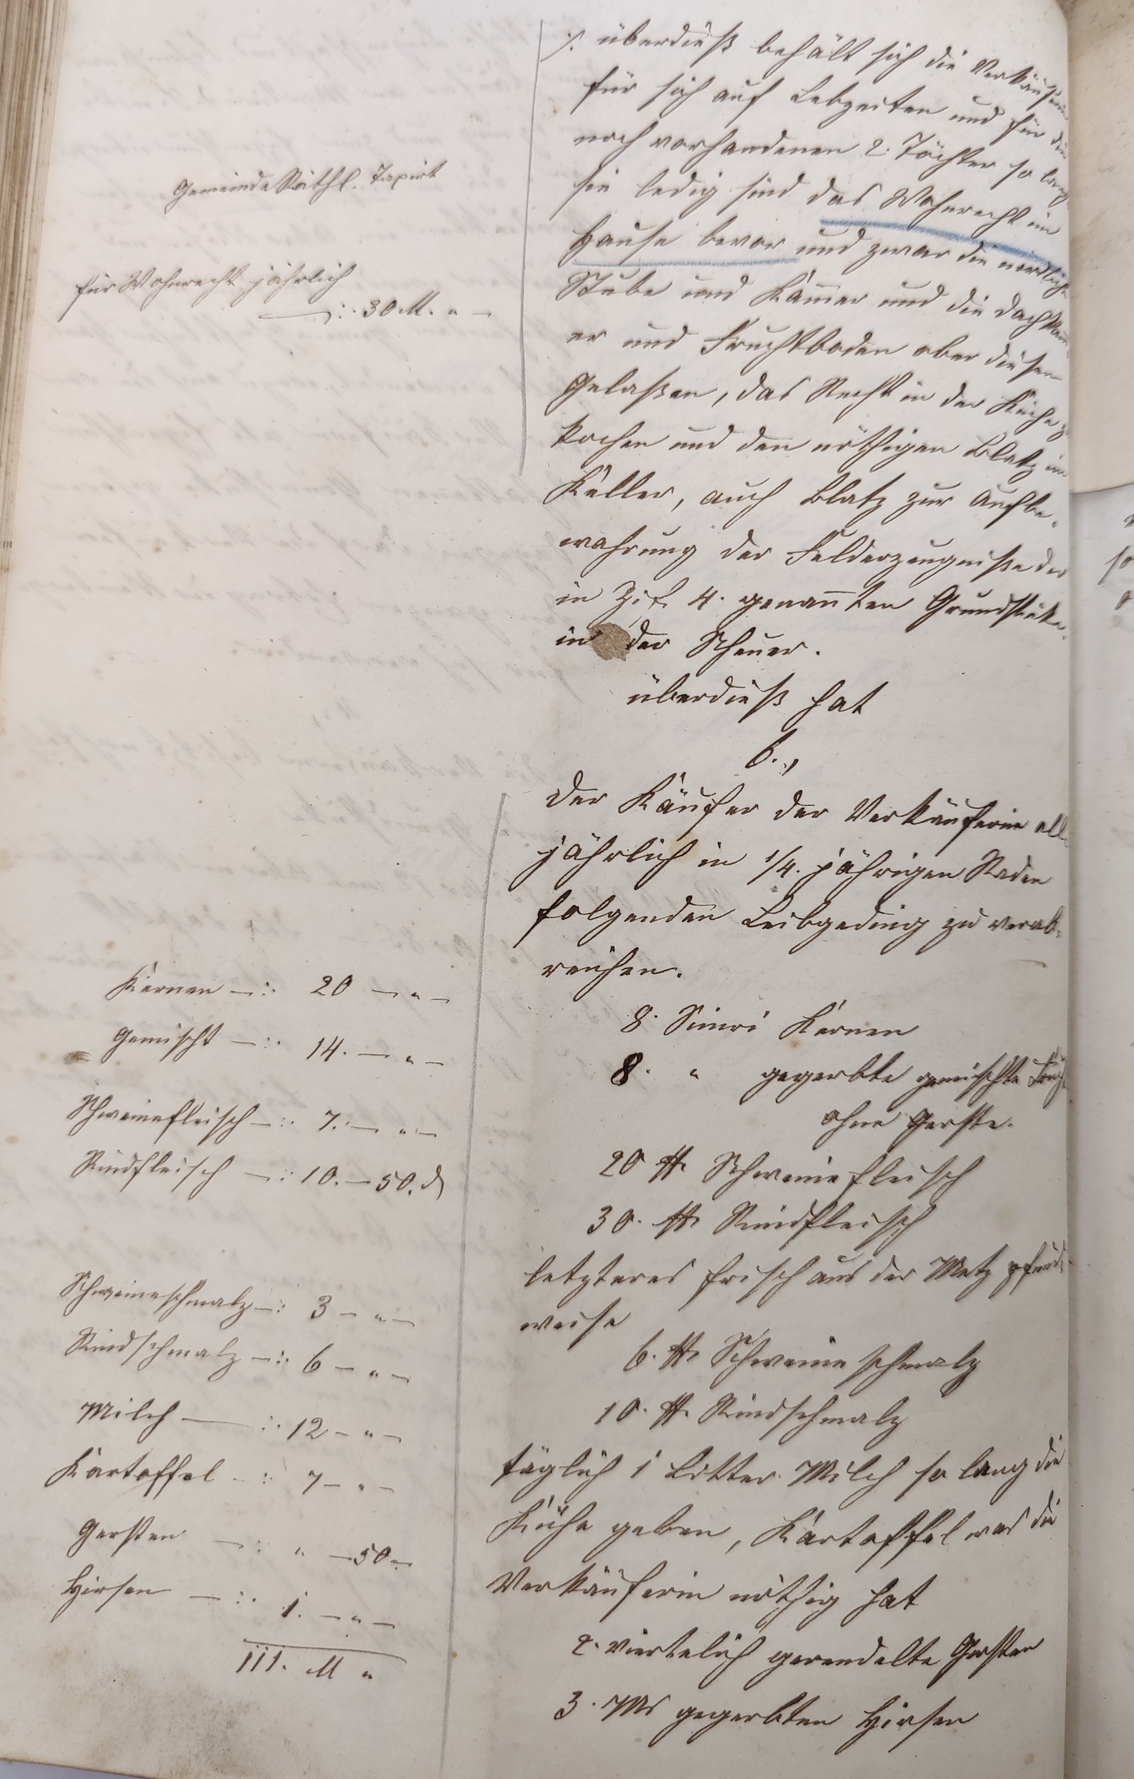 Gemeinderäthl. Taxirt
für Wohnrecht jährlich
—:. 30 M. " —
Kernen —:. 20 — " —
Gemischt —:. 14. — " —
Schweinefleisch —:. 7. — " —
Rindfleisch —:. 10. — 50. d
Schweineschmalz —: 3 — " —
Rindschmalz —:. 6 — " —
Milch —:. 12 — " —
Kartoffel —:. 7 — " —
Gersten —:. " — 50 —
Hirsen —:. 1. — " —
111. M "
/. überdieß behält sich die Verkäuferin
für sich auf Lebzeiten und für die
noch vorhandenen 2. Töchter so lang
sie ledig sind das Wohnrecht im
Hause bevor und zwar die nördliche
Stube und Kam̄er und die Dachkam̄
er und Fruchtboden ober diesen
Gelaßen, das Recht in der Küche z
kochen und den nöthigen Blatz im
Keller, auch Blatz zur Aufbe-
wahrung der Felderzeugniße der
in Zif. 4. genan̄ten Grundstüke
in der Scheuer.
überdieß hat
6.,
der Käufer der Verkäuferin all
jährlich in 1/4. jährigen Raden
folgenden Leibgeding zu verab-
reichen.
8. Simri Kernen
8. " gegerbte gemischte
ohne Gerste.
20 ℔ Schweinefleisch
30. ℔ Rindfleisch
letzteres frisch aus der Metz pfund-
weise
6. ℔ Schweineschmalz
10. ℔ Rindschmalz
täglich 1 Litter Milch so lang die
Kühe geben, Kartoffel was die
Verkäuferin nöthig hat
2. viertelich gerendelte Gersten
3. Ms gegerbten Hirsen